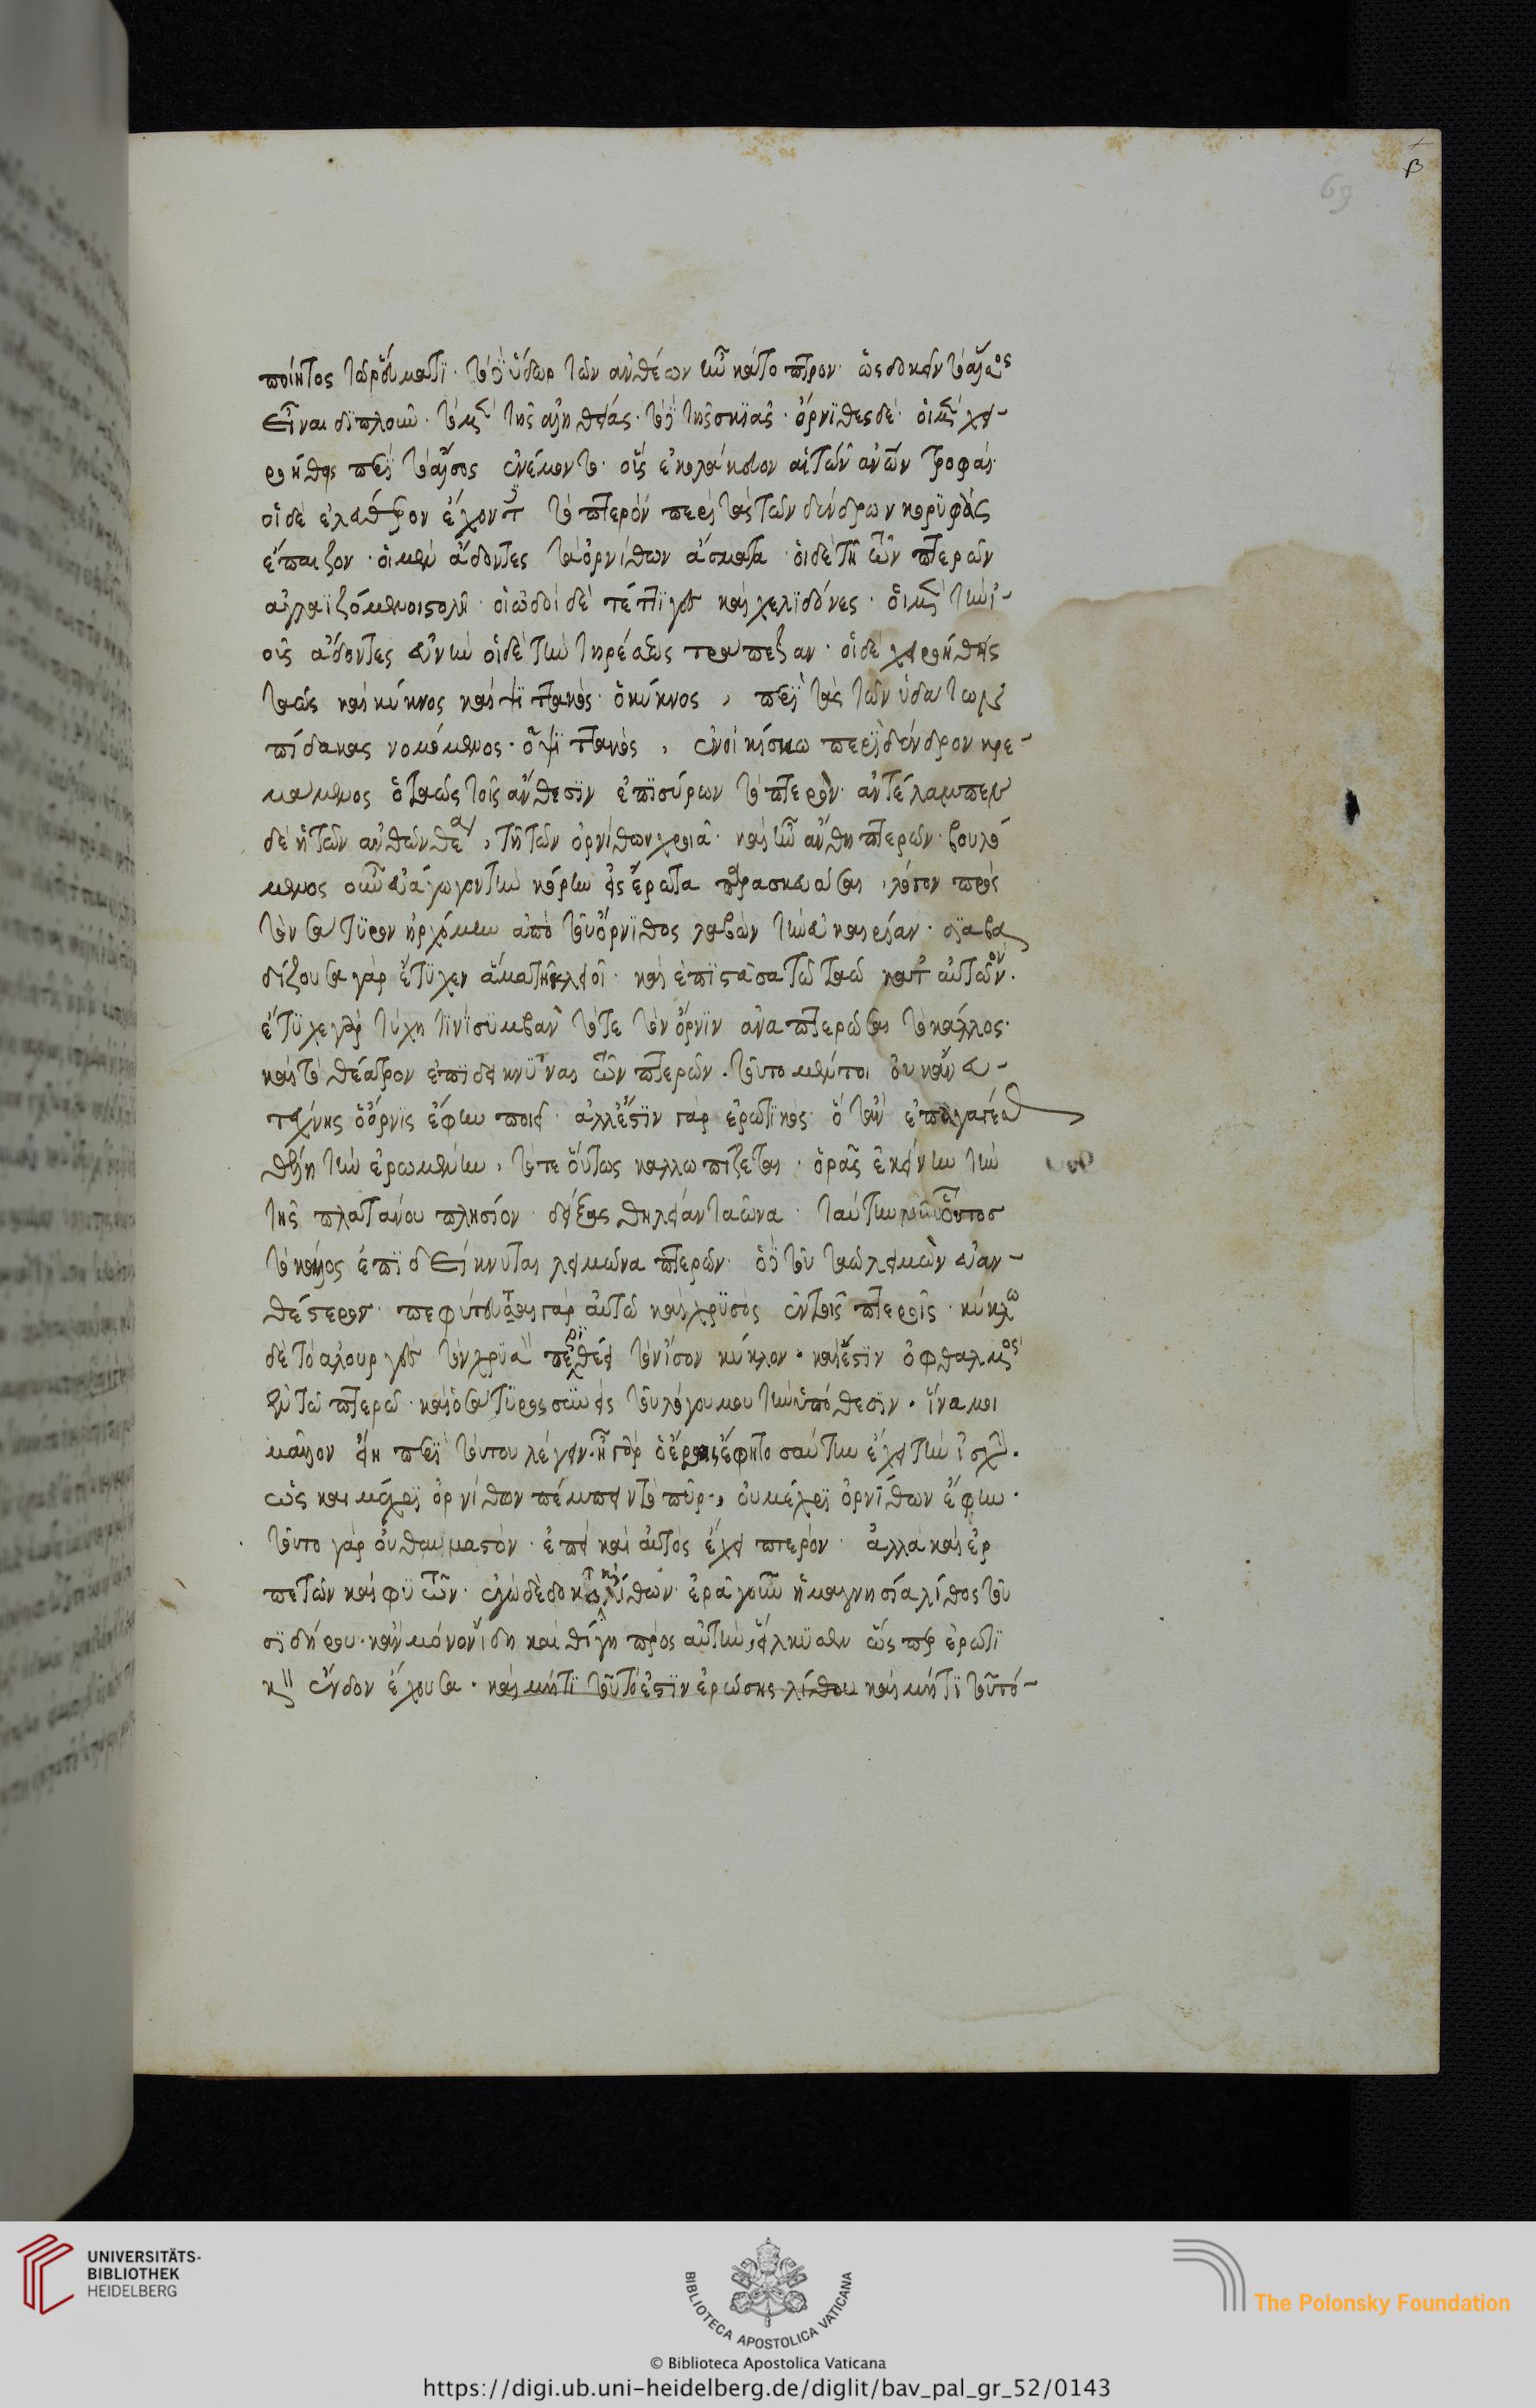 β
69
ποίητος τῶ ῥεύματι· τὸ δὲ ὕδωρ τῶν ἀνθέων ἦν κάτοπτρον· ὡς δοκεῖν τὸ ἄλσος
εἶναι διπλοῦν· τὸ μὲν τῆς ἀληθείας· τὸ δὲ τῆς σκιᾶς· ὄρνιθες δὲ· οἱ μὲν χει-
ροήθεις περὶ τὸ ἄλσος ἐνέμοντο· οἷς ἐκολάκευον αἱ τῶν ἀνθρώπων τροφαί·
οἱ δὲ ἐλεύθερον ἔχοντες τὸ πτερὸν περὶ τὰς τῶν δένδρων κορυφὰς
ἔπαιζον· οἱ μὲν ἄδοντες τὰ ὀρνίθων ἄσματα· οἱ δὲ τῆ τῶν πτερῶν
ἀγλαϊζόμενοι στολῆ· οἱ ὠδοὶ δὲ τέττιγες καὶ χελιδόνες· οἱ μὲν τὴν ἠ-
οῦς ἄδοντες εὐνὴν οἱ δὲ τὴν τηρέως τράπεζαν· οἱ δὲ χειροήθεις
ταὼς καὶ κύκνος καὶ ψιττακός· ὁ κύκνος, περὶ τὰς τῶν ὑδάτων
πίδακας νεμόμενος· ὁ ψιττακός, ἐν οἰκίσκω περὶ δένδρον κρε-
μάμενος ὁ ταὼς τοῖς ἄνθεσιν ἐπισύρων τὸ πτερόν· ἀντέλαμπεν
δὲ ἡ τῶν ἀνθῶν θέα, τῆ τῶν ὀρνίθων χροιᾶ· καὶ ἦν ἄνθη πτερῶν· βουλό
μενος οὖν εὐάγωγον τὴν κόρην εἰς ἔρωτα παρασκευάσαι, λόγον πρὸς
τὸν σάτυρον ἠρχόμην ἀπὸ τοῦ ὄρνιθος λαβὼν τὴν εὐκαιρίαν· διαβα
δίζουσα γὰρ ἔτυχεν ἅμα τῆ κλειοῖ· καὶ ἐπιστᾶσα τῶ ταῶ κατ' αὐτῶν·
ἔτυχε γὰρ τύχη τινὶ συμβὰν τότε τὸν ὄρνιν ἀναπτερῶσαι τὸ κάλλος·
καὶ τὸ θέατρον ἐπιδεικνύναι τῶν πτερῶν· τοῦτο μέντοι οὐκ ἄνευ
τέχνης ὁ ὄρνις ἔφην ποιεῖ· ἀλλ' ἔστιν γὰρ ἐρωτικός· ὅταν ἐπαγαγέσθαι
θέλη τὴν ἐρωμένην, τότε οὕτως καλλωπίζεται· ὁρᾶς ἐκείνην τὴν
τῆς πλατάνου πλησίον· δείξας θήλειαν ταῶνα· ταύτη νῦν οὗτος
τὸ κάλλος ἐπιδείκνυται λειμῶνα πτερῶν· ὁ δὲ τοῦ ταὼ λειμὼν εὐαν-
θέστερον· πεφύτευται γὰρ αὐτῶ καὶ χρυσὸς ἐν τοῖς πτεροῖς· κύκλω
δὲ τὸ ἁλουργὲς τὸν χρυσὸν περιθέει τὸν ἴσον κύκλον· καὶ ἔστιν ὀφθαλμὸς
ἐν τῶ πτερῶ· καὶ ὁ σάτυρος συνεὶς τοῦ λόγου μου τὴν ὑπόθεσιν· ἵνα μοι
μᾶλλον εἴη περὶ τούτου λέγειν· ἦ γὰρ ὁ ἔρως ἔφη τοσαύτην ἔχει τὴν ἰσχὺν·
ὡς καὶ μέχρι ὀρνίθων πέμπειν τὸ πῦρ·, οὐ μέχρι ὀρνίθων ἔφην·
τοῦτο γὰρ οὐ θαυμαστὸν· ἐπεὶ καὶ αὐτὸς ἔχει πτερόν· ἀλλὰ καὶ ἑρ
πετῶν καὶ φυτῶν· ἐγὼ δὲ δοκῶ καὶ λίθων· ἐρᾶ γοῦν ἡ μαγνησία λίθος τοῦ
σιδήρου· κἂν μόνον ἴδη καὶ θίγη πρὸς αὐτὴν, εἵλκυσεν ὥσπερ ἐρωτι
κὸν ἔνδον ἔχουσα· καὶ μή τι τοῦτό ἐστιν ἐρώσης λίθου καὶ μή τι τοῦτό-
UNIVERSITÄTS-
BIBLIOTHEK
HEIDELBERG
BIBLIOTECA APOSTOLICA VATICANA
The Polonsky Foundation
© Biblioteca Apostolica Vaticana
https://digi.ub.uni-heidelberg.de/diglit/bav_pal_gr_52/0143